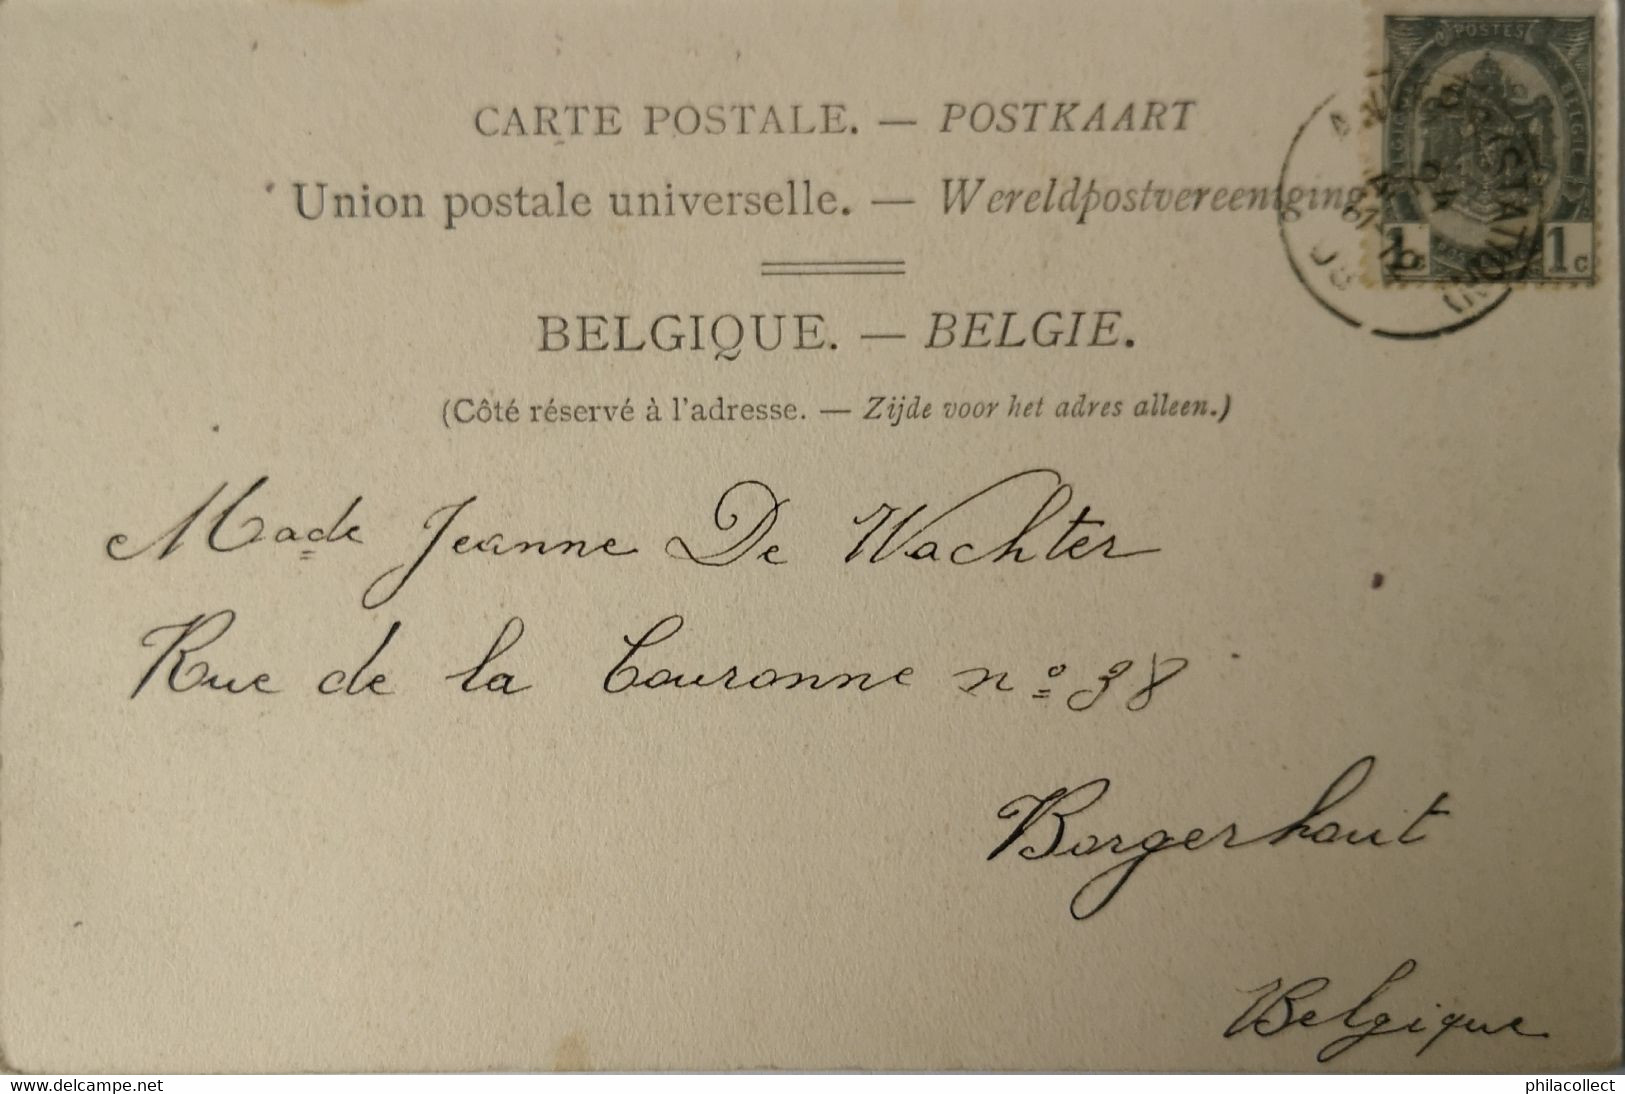 CARTE POSTALE. — POSTKAART
Union postale universelle. — Wereldpostvereeniging
BELGIQUE. — BELGIE.
(Côté réservé à l'adresse. — Zijde voor het adres alleen.)
POSTES
BELGIE
1c 1c
STATION)
08
Made Jeanne De Wachter
Rue de la Couronne no 38
Borgerhout
Belgique
Visit our store @ delcampe.net
philacollect